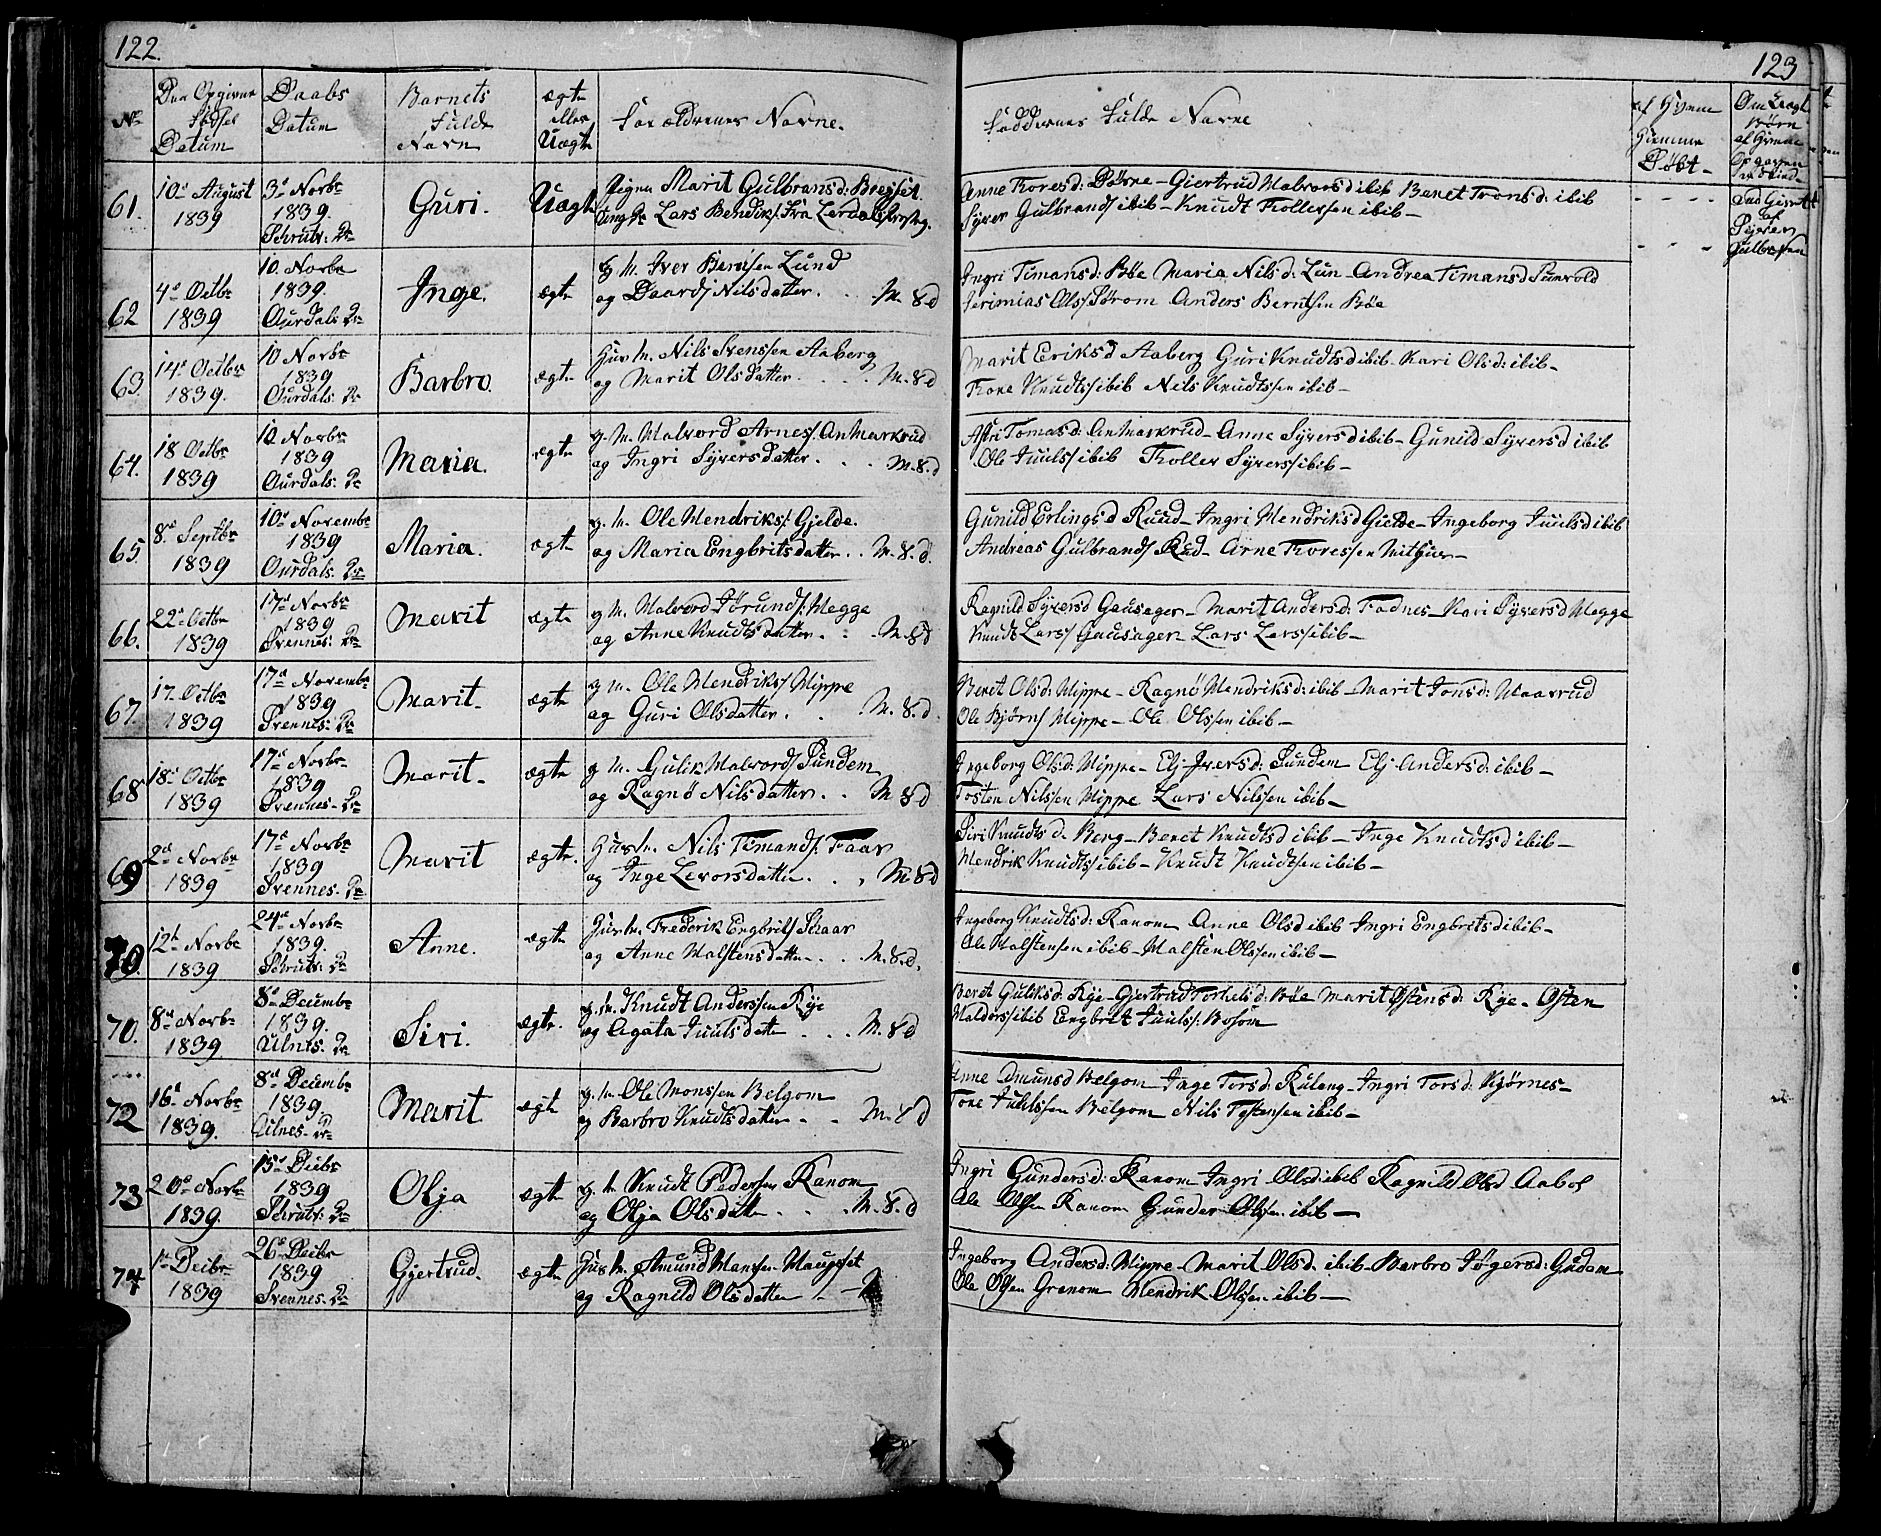 122.
123
No
Den Opgivne Fødsel Datum
Daabs Datum
Barnets Fulde Navn
ægte eller Uægte
Forældrenes Navne.
Faddernes Fulde Navne
af Hvem Hiemme Døbt-
Om Uægte Børn af Hvem Opgaven
61.
10de August
1839
3de Novbr
1839.
Guri.
Uægte
Pigen Marit Gulbransd:
Ungk. Lars Bendiks/. Fra Lerdals
Anne Toresd: Børne- Giertrud Halvorsd ibib Beret Tronsd: ibib
Syver Gulbrands/ ibib- Knudt Tollefsen ibib-
Gulbransen
62
4de Octbr
1839
10. Novbr
1839.
Ourdals: Kr
Inge.
ægte
g. M. Iver Berntsen Lund
og Nilsdatter. . . M. 8d
Ingri Timansd: Bøe Maria Nilsd: Lun- Andrea Timansd
Jerimias Ols/ Sørom Anders Berntsen Bøe
63.
14de Octbr
1839.
10 Novbr
1839
Ourdals: Kr
Barbro.
ægte
Huusm. Nils Svenssen Aaberg
og Marit Olsdatter. . . . M. 8d
Marit Eriksd Aaberg Guri Knudtsd ibib- Kari Olsd: ibib-
Tore Knudts/ ibib Nils Knudtssen ibib-
64.
18 Octbr
1839
10 Novbr
1839
Ourdals: Kr
Maria.
ægte
g. M. Halvord Arnes/.
og Ingri Syversdatter. . . M. 8.d
Tomasd: - Anne Syversd ibib- Gunild Syversd ibib
Ole Juuls/ ibib Tollev Syvers/ ibib-
65.
8de Septbr
1839
10de Novembr
1839
Ourdals. Kr
Maria.
ægte
g. M. Ole Hendriks/. Gjelde.
og Maria Engbritsdatter. . M. 8. d.
Gunild Erlingsd Ruud- Ingri Hendriksd Gielde- Ingeborg Juulsd ibib
Andreas Gulbrands/ Rud- Arne Toressen
66.
22de Octbr
1839
17de Novbr
1839
Svennes: Kr
Marit
ægte
g M. Halvord Jørunds/: Hegge
og Anne Knudtsdatter. . M. 8d
Ragnild Syversd Gausager- Marit Andersd: Fodnes- Kari Syversd Hegge
Knudt Lars/ Gausager Lars Lars/ ibib-
67.
17. Octbr
1839
17de Novembr
1839
Svennes: Kr
Marit-
ægte
g M. Ole Hendriks/ Hippe
og Guri Olsdatter. . . M. 8.d.
Beret Olsd: Hippe- Ragnø Hendriksd: ibib- Marit Tonsd: Haavrud
Ole Bjørns/ Hippe- Ole Olssen ibib-
68
18de Octbr
1839
17de Novbr
1839
Svennes- Kr
Marit-
ægte
g M. Gulik Halvords/ Sundem
og Ragnø Nilsdatter. . M 8d
Ingeborg Olsd: Hippe- Elj- Iversd: Sundem Elj- Andersd: ibib-
Tosten Nilssen Hippe Lars Nilssen ibib-
69
2de Novbr
1839
17de Novbr
1839
Svennes- Kr
Marit
ægte.
Huusm. Nils Timands/. Faar
og Inge Levorsdatter. . . M. 8d
Siri Knudtsd. Berg- Beret Knudtsd ibib- Inge Knudtsd ibib-
Hendrik Knudts/ ibib- Knudt Knudtsen ibib-
70.
12te Novbr
1839
24de Novbr
1839.
Anne.
ægte
Huusm. Frederik Engbrits/ Skaar
og Anne Halstensdatter- . . M. 8.d.
Ingeborg Knudtsd: Ranom Anne Olsd ibib Ingri Engbritsd ibib-
Ole Halstensen ibib- Halsten Olssen ibib-
70.
8de Novbr
1839
8de Decembr
1839.
Ulnes. Kr
Siri.
ægte.
g. M. Knudt Anderssen Rye
og Agata Juulsdatter . . . M. 8d
Beret Guliksd: Rye- Gjertrud Torkelsd: Bøe Marit Østensd: Rye- Østen
Haldors/ ibib Engbret Juuls/:
72
16de Novbr
1839.
8de Decembr
1839.
Ulnes- Kr
Marit
ægte
g. M. Ole Monssen Belgom
og Barbro Knudtsdatter- . . M. 8d
Anne Omunsd Belgom Inge Torsd: Ruleng- Ingri Torsd: Kjørnes-
Tore Juulssen Belgom Nils Tostensen ibib-
73
20de Novbr
1839.
15de Decbr
1839
Olja
ægte
g. M Knudt Pedersen Ranom
og Olja Olsdatter . . . M. 8. d
Ingri Gundersd: Ranom Ingri Olsd ibib Ragnild Olsd Aabol
Ole Olssen Ranom Gunder Olssen ibib-
74
1te Decbr
1839
26de Decbr
1839
Svennes. Kr
Gjertrud.
ægte
Huusm. Amund Hanssen
og Ragnild Olsdatter -
Ingeborg Andersd: Hippe- Marit Olsd: ibib- Barbro
Ole Olssen Grenom Hendrik Olssen ibib-